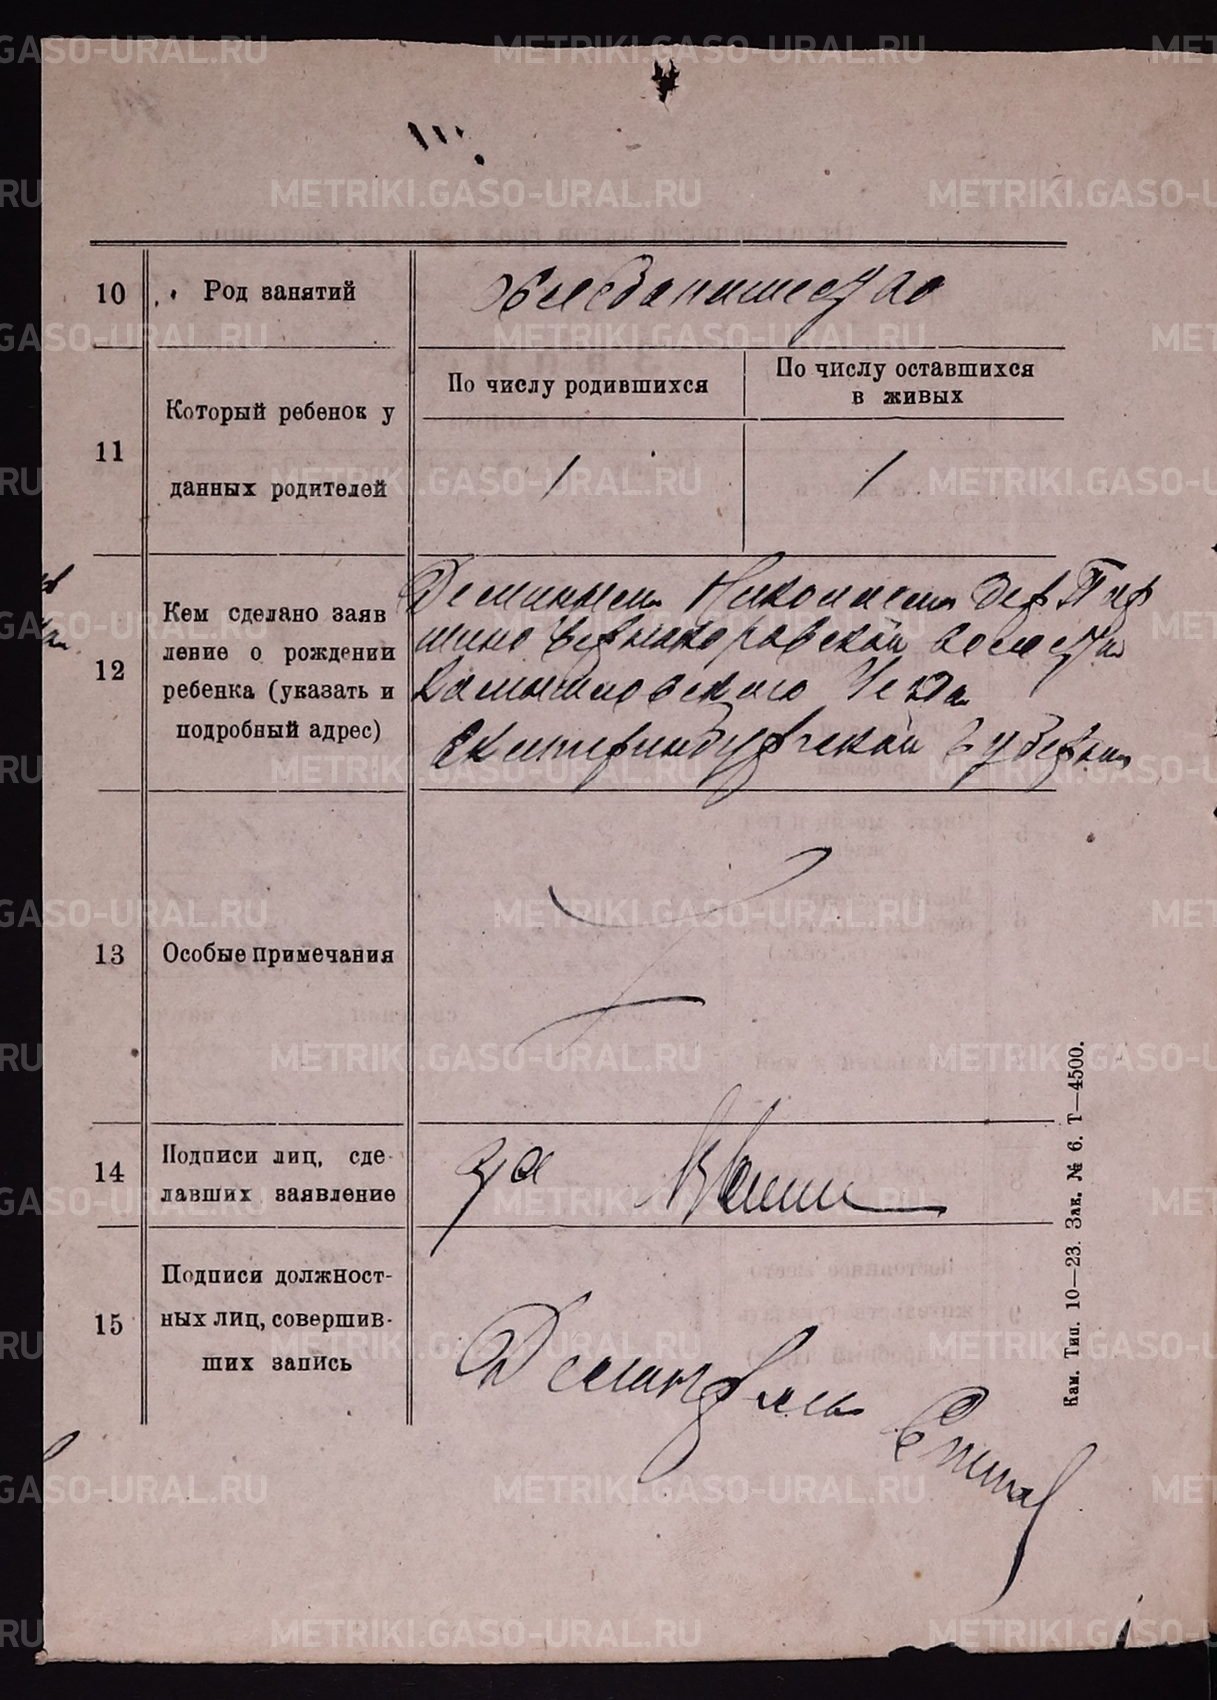 10 Род занятий
Хлебопашество
11 Который ребенок у
данных родителей
По числу родившихся
По числу оставшихся
в живых
1 1
12 Кем сделано заяв
ление о рождении
ребенка (указать и
подробный адрес)
Николаем дер
волости
Камышловского Уезда
Екатеринбургской Губернии
13 Особые примечания
14 Подписи лиц, сде-
лавших заявление
За
15 Подписи должност-
ных лиц, совершив-
ших запись
Кам. Тип. 10—23. Зак. № 6. Т—4500.
METRIKI.GASO-URAL.RU